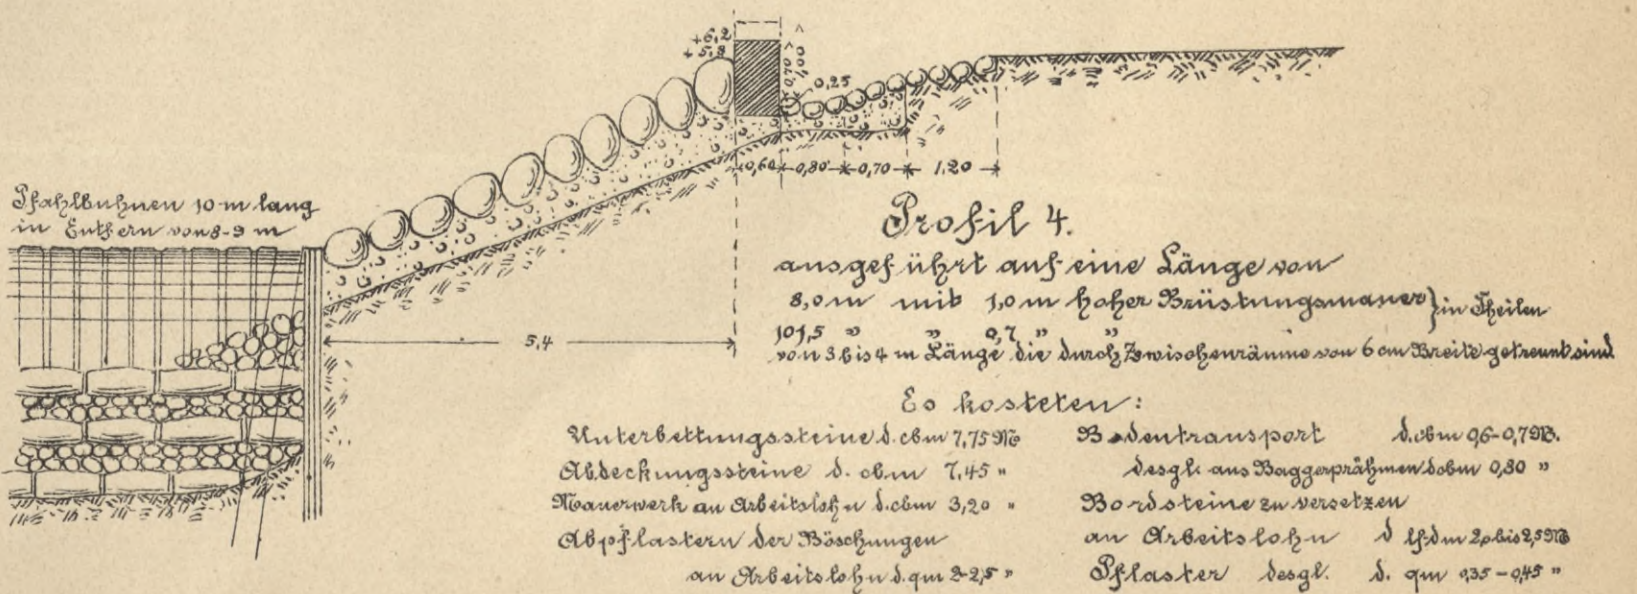 +6,2
+5,8
0,25
0,60 0,80 0,70 1,20
Pfahlbuhnen 10 m lang
in Entfern von 8-9 m
5,4
Profil 4.
ausgeführt auf eine Länge von
8,0 m mit 1,0 m hoher Brüstungsmauer } in Theilen
101,5 " " 0,7 " "
von 3 bis 4 m Länge, die durch Zwischenräume von 6 cm Breite getrennt sind
Es kosteten:
Unterbettungssteine d. cbm 7,75 M
Abdeckungssteine d. cbm 7,45 "
Mauerwerk an Arbeitslohn d. cbm 3,20 "
Abpflastern der Böschungen
an Arbeitslohn d. qm 2-2,5 "
Bodentransport d. cbm 0,6-0,7 M.
desgl. aus Baggerprähmen d cbm 0,80 "
Bordsteine zu versetzen
an Arbeitslohn d lfdm 2,0 bis 2,5 M
Pflaster desgl. d. qm 0,35-0,45 "